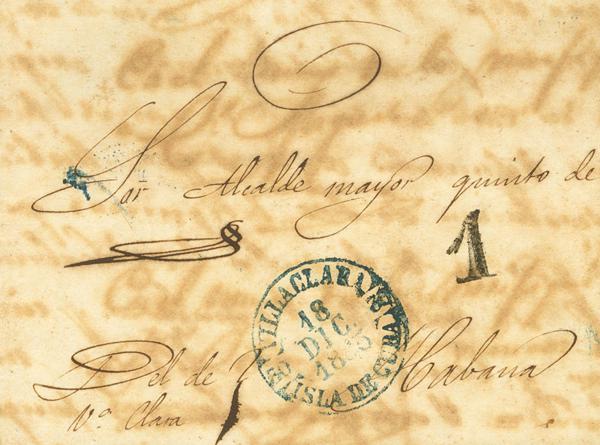 Sor Alcalde mayor quinto de
1
VILLACLARA
18
DIC.
ISLA DE CUBA
Del de Habana
Va Clara